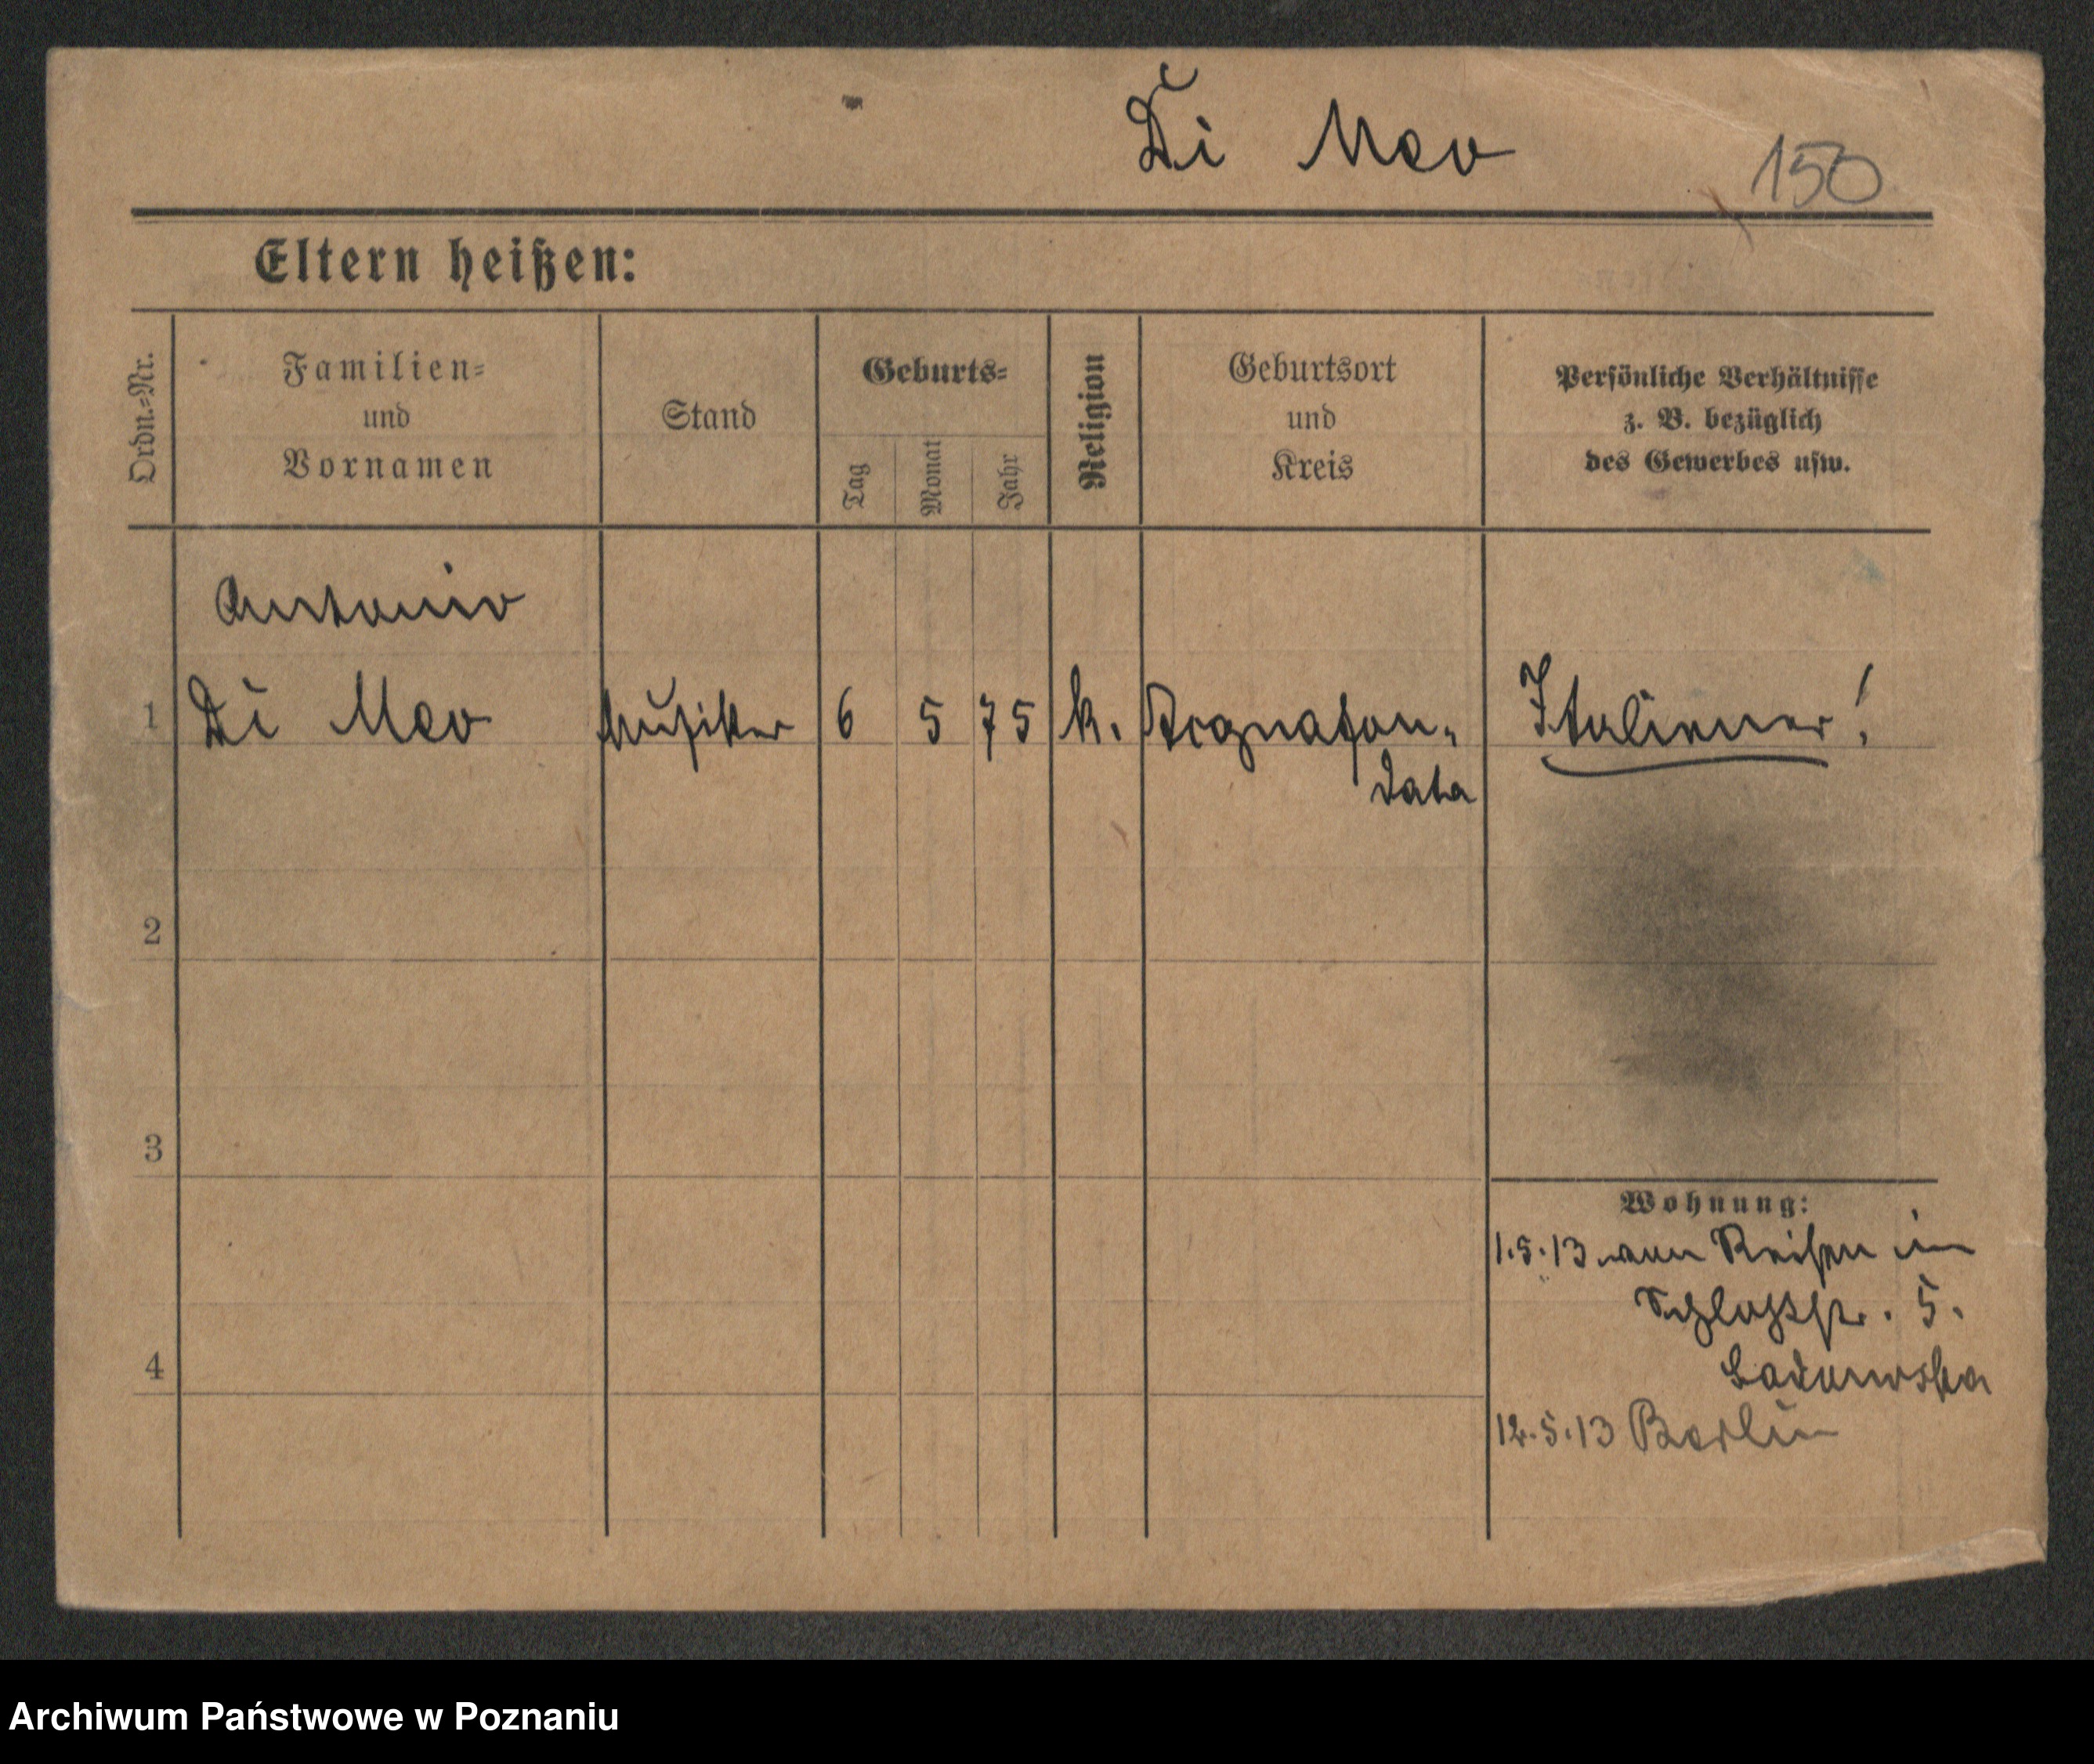 Di Meo
150
Eltern heißen:
Ordn.-Nr.
Familien-
und
Vornamen
Stand
Geburts-
Tag
Monat
Jahr
Religion
Geburtsort
und
Kreis
Persönliche Verhältnisse
z. B. bezüglich
des Gewerbes usw.
Antonio
1 Di Meo Musiker 6 5 75 k. Italiener!
2
3
Wohnung:
1.5.13 von Reisen in
Schlossstr. 5.
4
12.5.13 Berlin
Archiwum Państwowe w Poznaniu